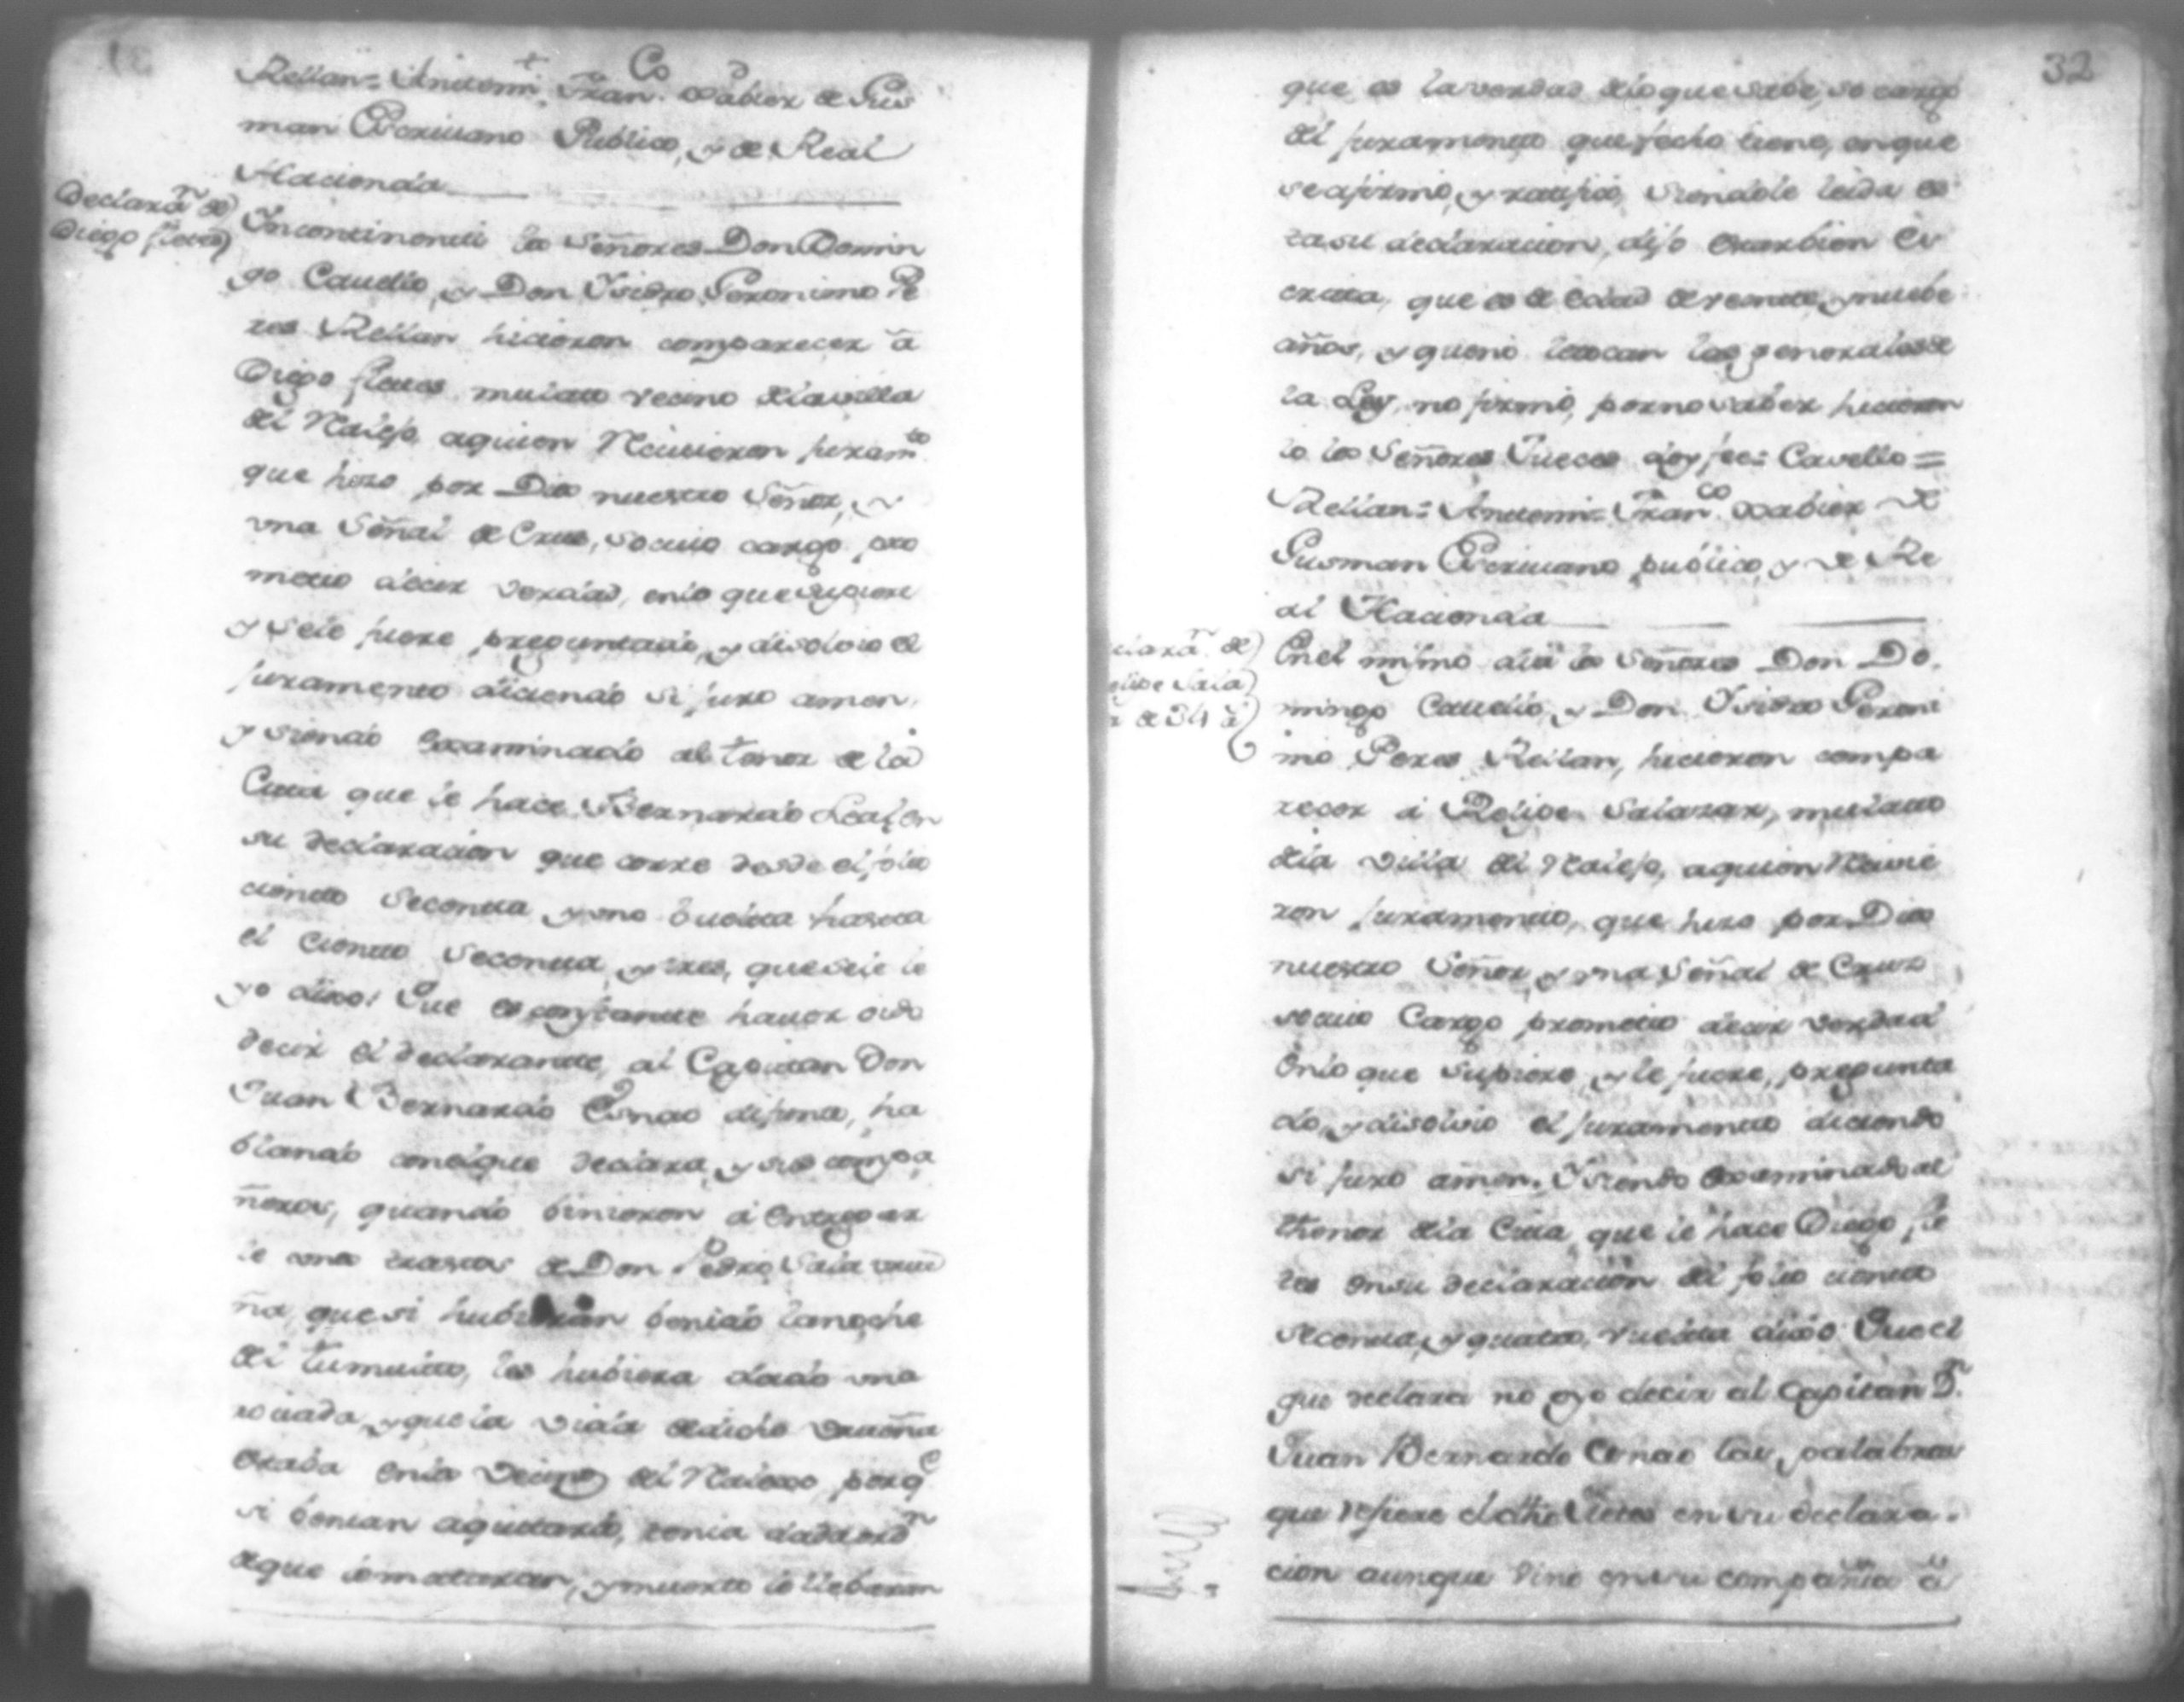 Rellan = Antemi Fran.co Xabier de Gus
man Escriuano Publico, y de Real
Hacienda
Declaraⁿ de
Diego fletes
Incontinenti los Señores Don Domin
go Cauello, y Don Ysidro Geronimo Pe
res Rellan hicieron comparecer â
Diego fletes mulato vecino de la villa
del Realejo aquien Reciuieron juramto
que hizo por Dios nuestro Señor, y
vna Señal de Cruz, so cuio cargo pro
metio decir verdad, enlo que supiere
y sele fuere preguntado, y disolvio el
juramento diciendo si juro amen,
y siendo Examinado al tenor de la
Cita que le hace Bernardo Leal en
su declaracion que corre desde el folio
ciento secenta y vno buelta hasta
el ciento secenta, y tres, que sele le
yo dixo: Que es constante hauer oido
decir el declarante, al Capitan Don
Juan Bernardo Cenao difunto, ha
blando con el que declara, y sus compa
ñeros, quando binieron á Entregar
le vnos trastos de Don Pedro Salaverri
ña, que si hubieran benido la noche
del tumulto, los hubiera dado vna
rociada, y que la vida de dicho
Estaba enlos Vecinos del Realexo, porq.e
si benian aquitarlo, tenia dada ordⁿ
aque lo mataran, y muerto lo llebaran
32
que es la verdad de lo que sabe, so cargo
del juramento que fecho tiene, en que
se afirmó, y ratificó, siendole leida es
ta su declaracion, dijo Estar bien Es
crita, que es de edad de veinte, y nuebe
años, y que no le tocan las generales de
la Ley, no firmó, por no saber hicieron
lo los Señores Jueces doy fee = Cavello =
Rellan = Antemi = Fran.co Xabier de
Gusman Escriuano publico, y de Re
al Hacienda
claraⁿ de
elipe Sala
r de 34 a
En el mismo dia los Señores Don Do.
mingo Cauello, y Don Ysidro Geroni
mo Peres Rellan, hicieron compa
recer á Felipe Salazar, mulato
de la villa del Realejo, aquien Reciuie
ron juramento, que hizo por Dios
nuestro Señor, y vna Señal de Cruz
so cuio Cargo prometio decir verdad
Enlo que supiere, y le fuere, pregunta
do, y disolvio el juramento diciendo
si juro amen. Y siendo Examinado al
thenor de la Cita, que le hace Diego fle
tes en su declaracion del folio ciento
secenta, y quatro, vuelta dixo: Que el
que declara no oyo decir al Capitan Dⁿ.
Juan Bernardo Cenao las palabras
que refiere el dho fletes en su declara.
cion aunque vino en su compañia â